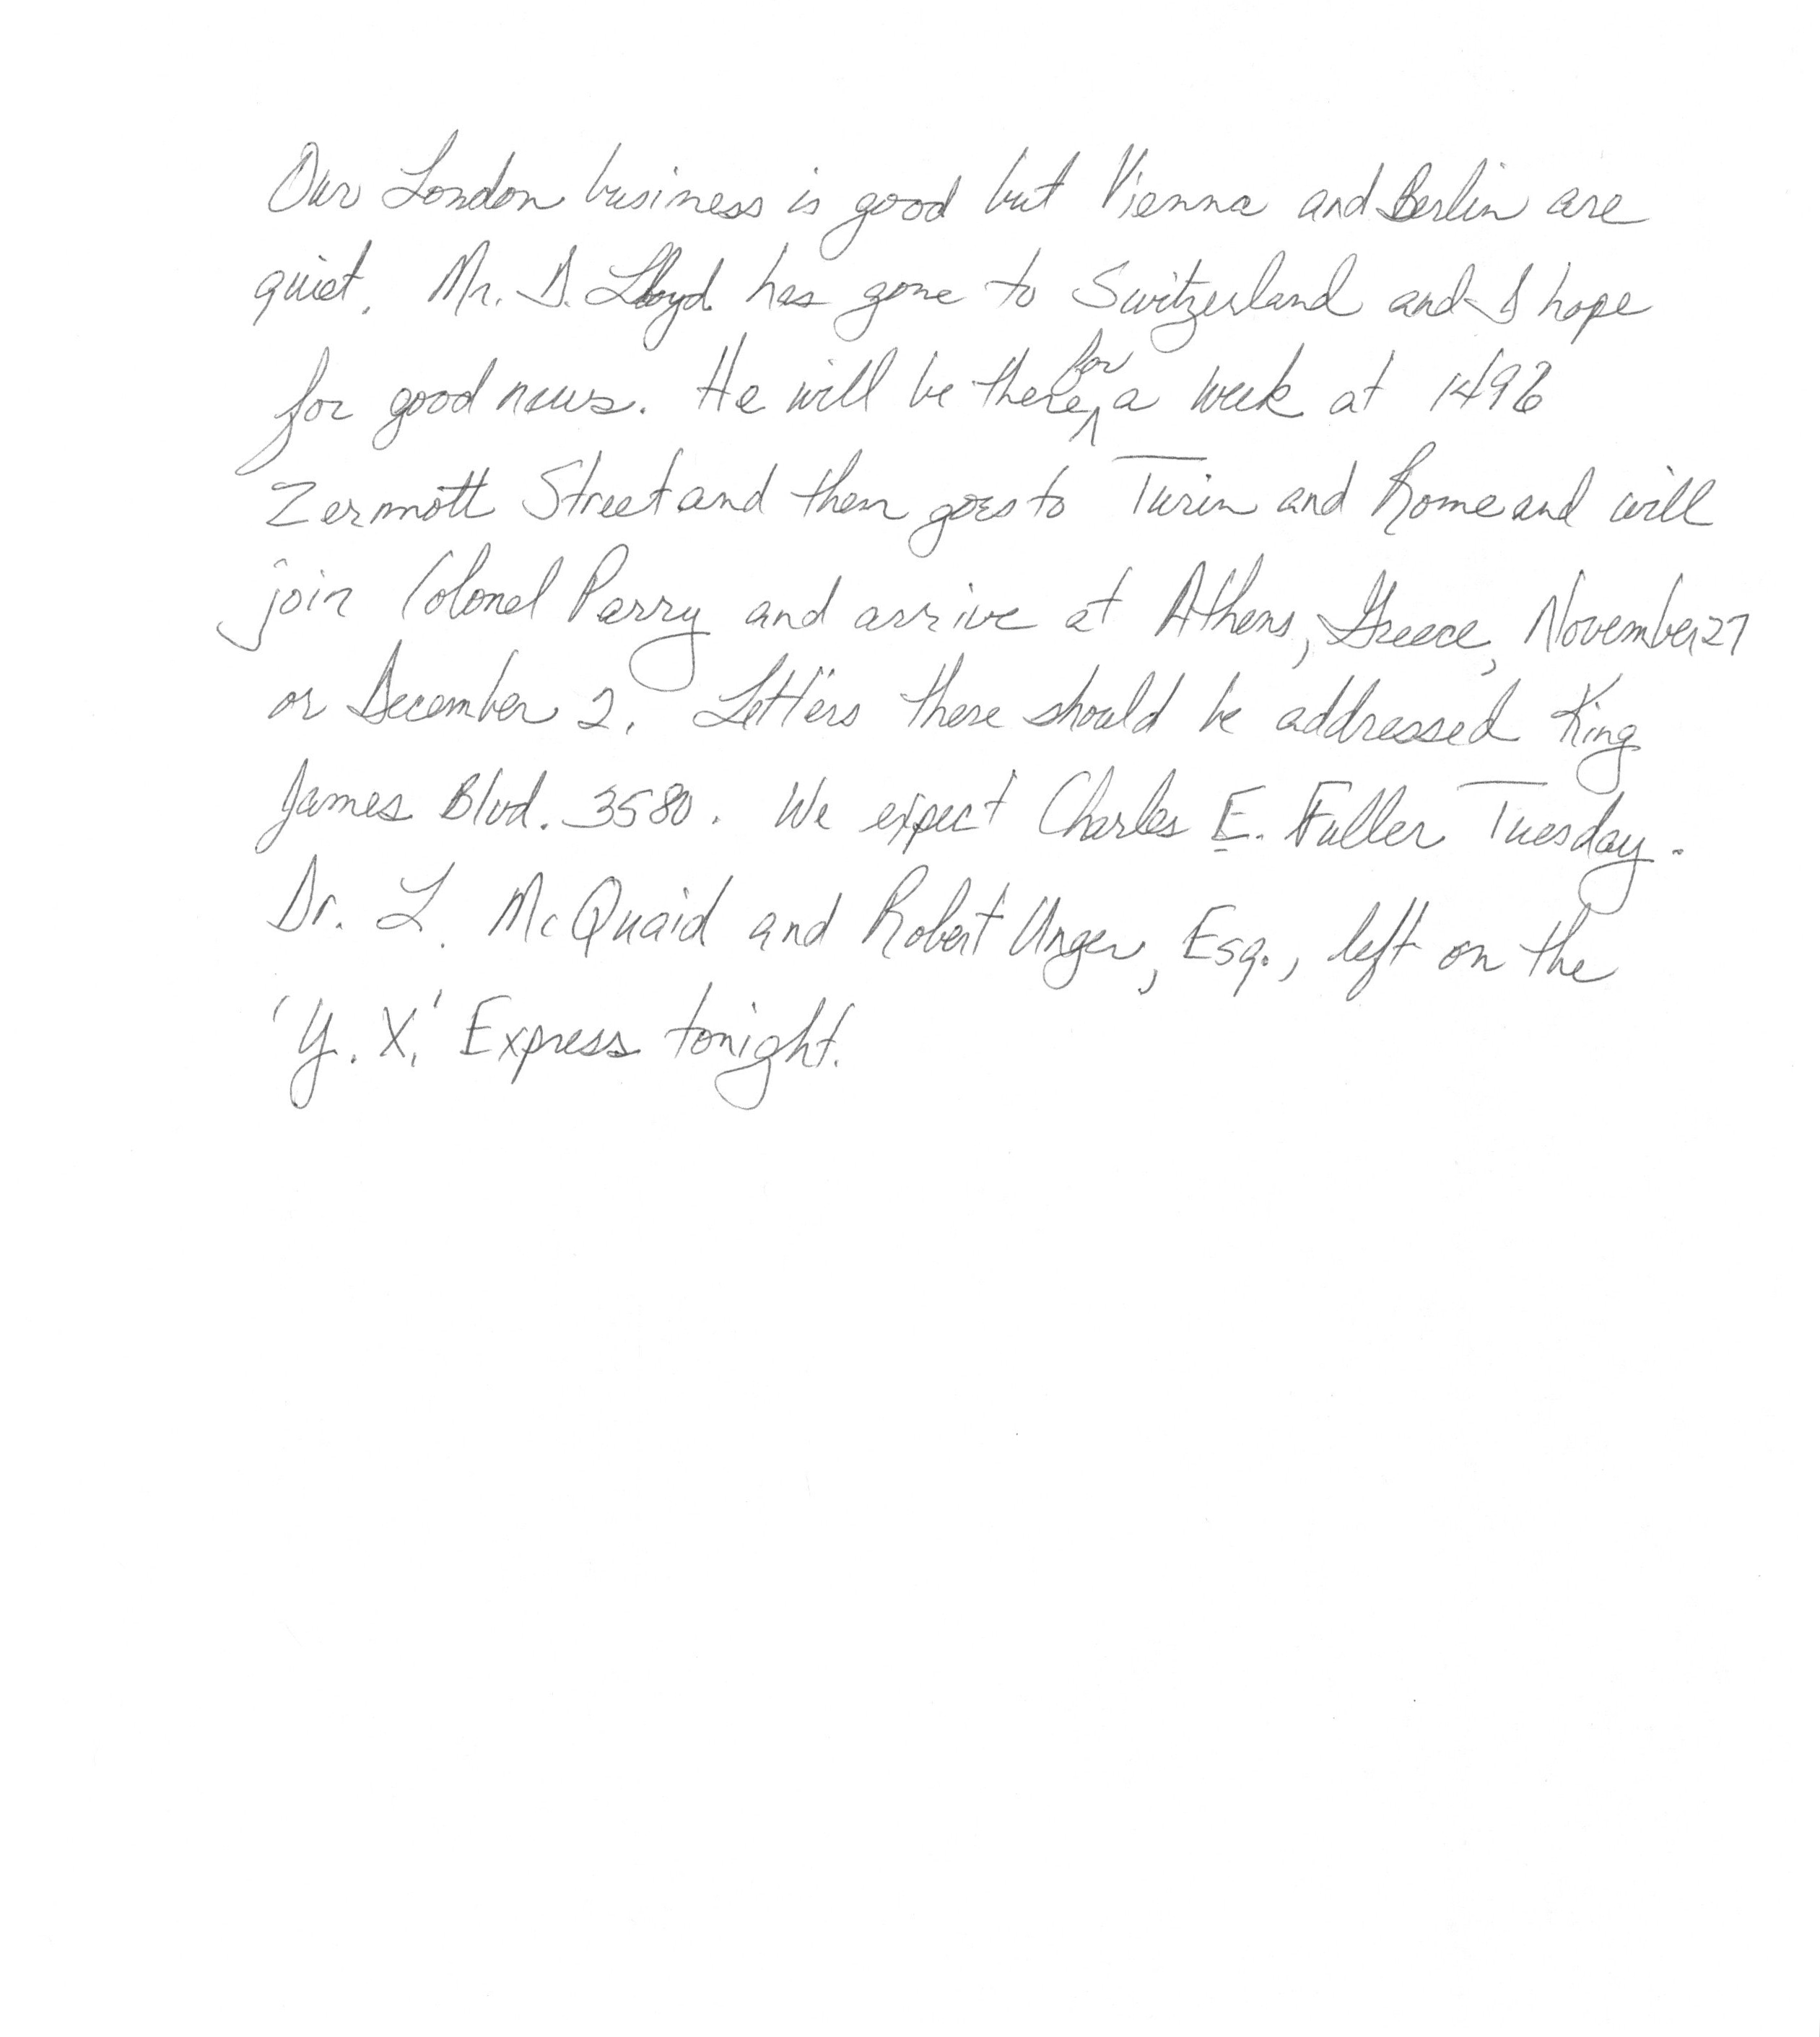 Our London business is good but Vienna and Berlin are
quiet. Mr. D. Lloyd has gone to Switzerland and I hope
for good news. He will be there for a week at 1496
Zermott Street and then goes to Turin and Rome and will
join Colonel Parry and arrive at Athens, Greece, November 27
or December 2. Letters there should be addressed King
James Blvd. 3580. We expect Charles E. Fuller Tuesday.
Dr. L. McQuaid and Robert Unger, Esq., left on the
'Y. X.' Express tonight.